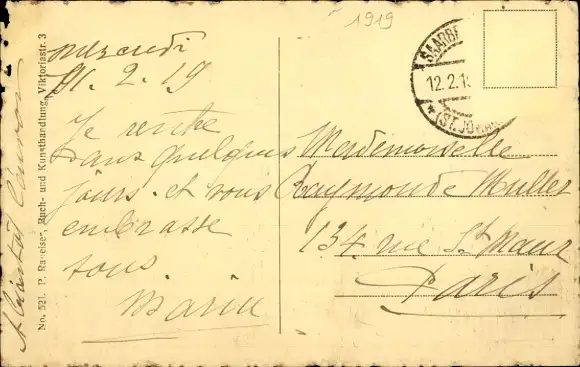 1919
mercredi
11.2.19
Je rentre
dans quelques
jours et vous
embrasse
tous
Marie
Mademoiselle
Raymonde Muller
134 rue St Maur
Paris
A Bientôt
SAARBR
12.2.1
* (ST. JOHANN
No. 521. P. Raueiser, Buch- und Kunsthandlung, Viktoriastr. 3